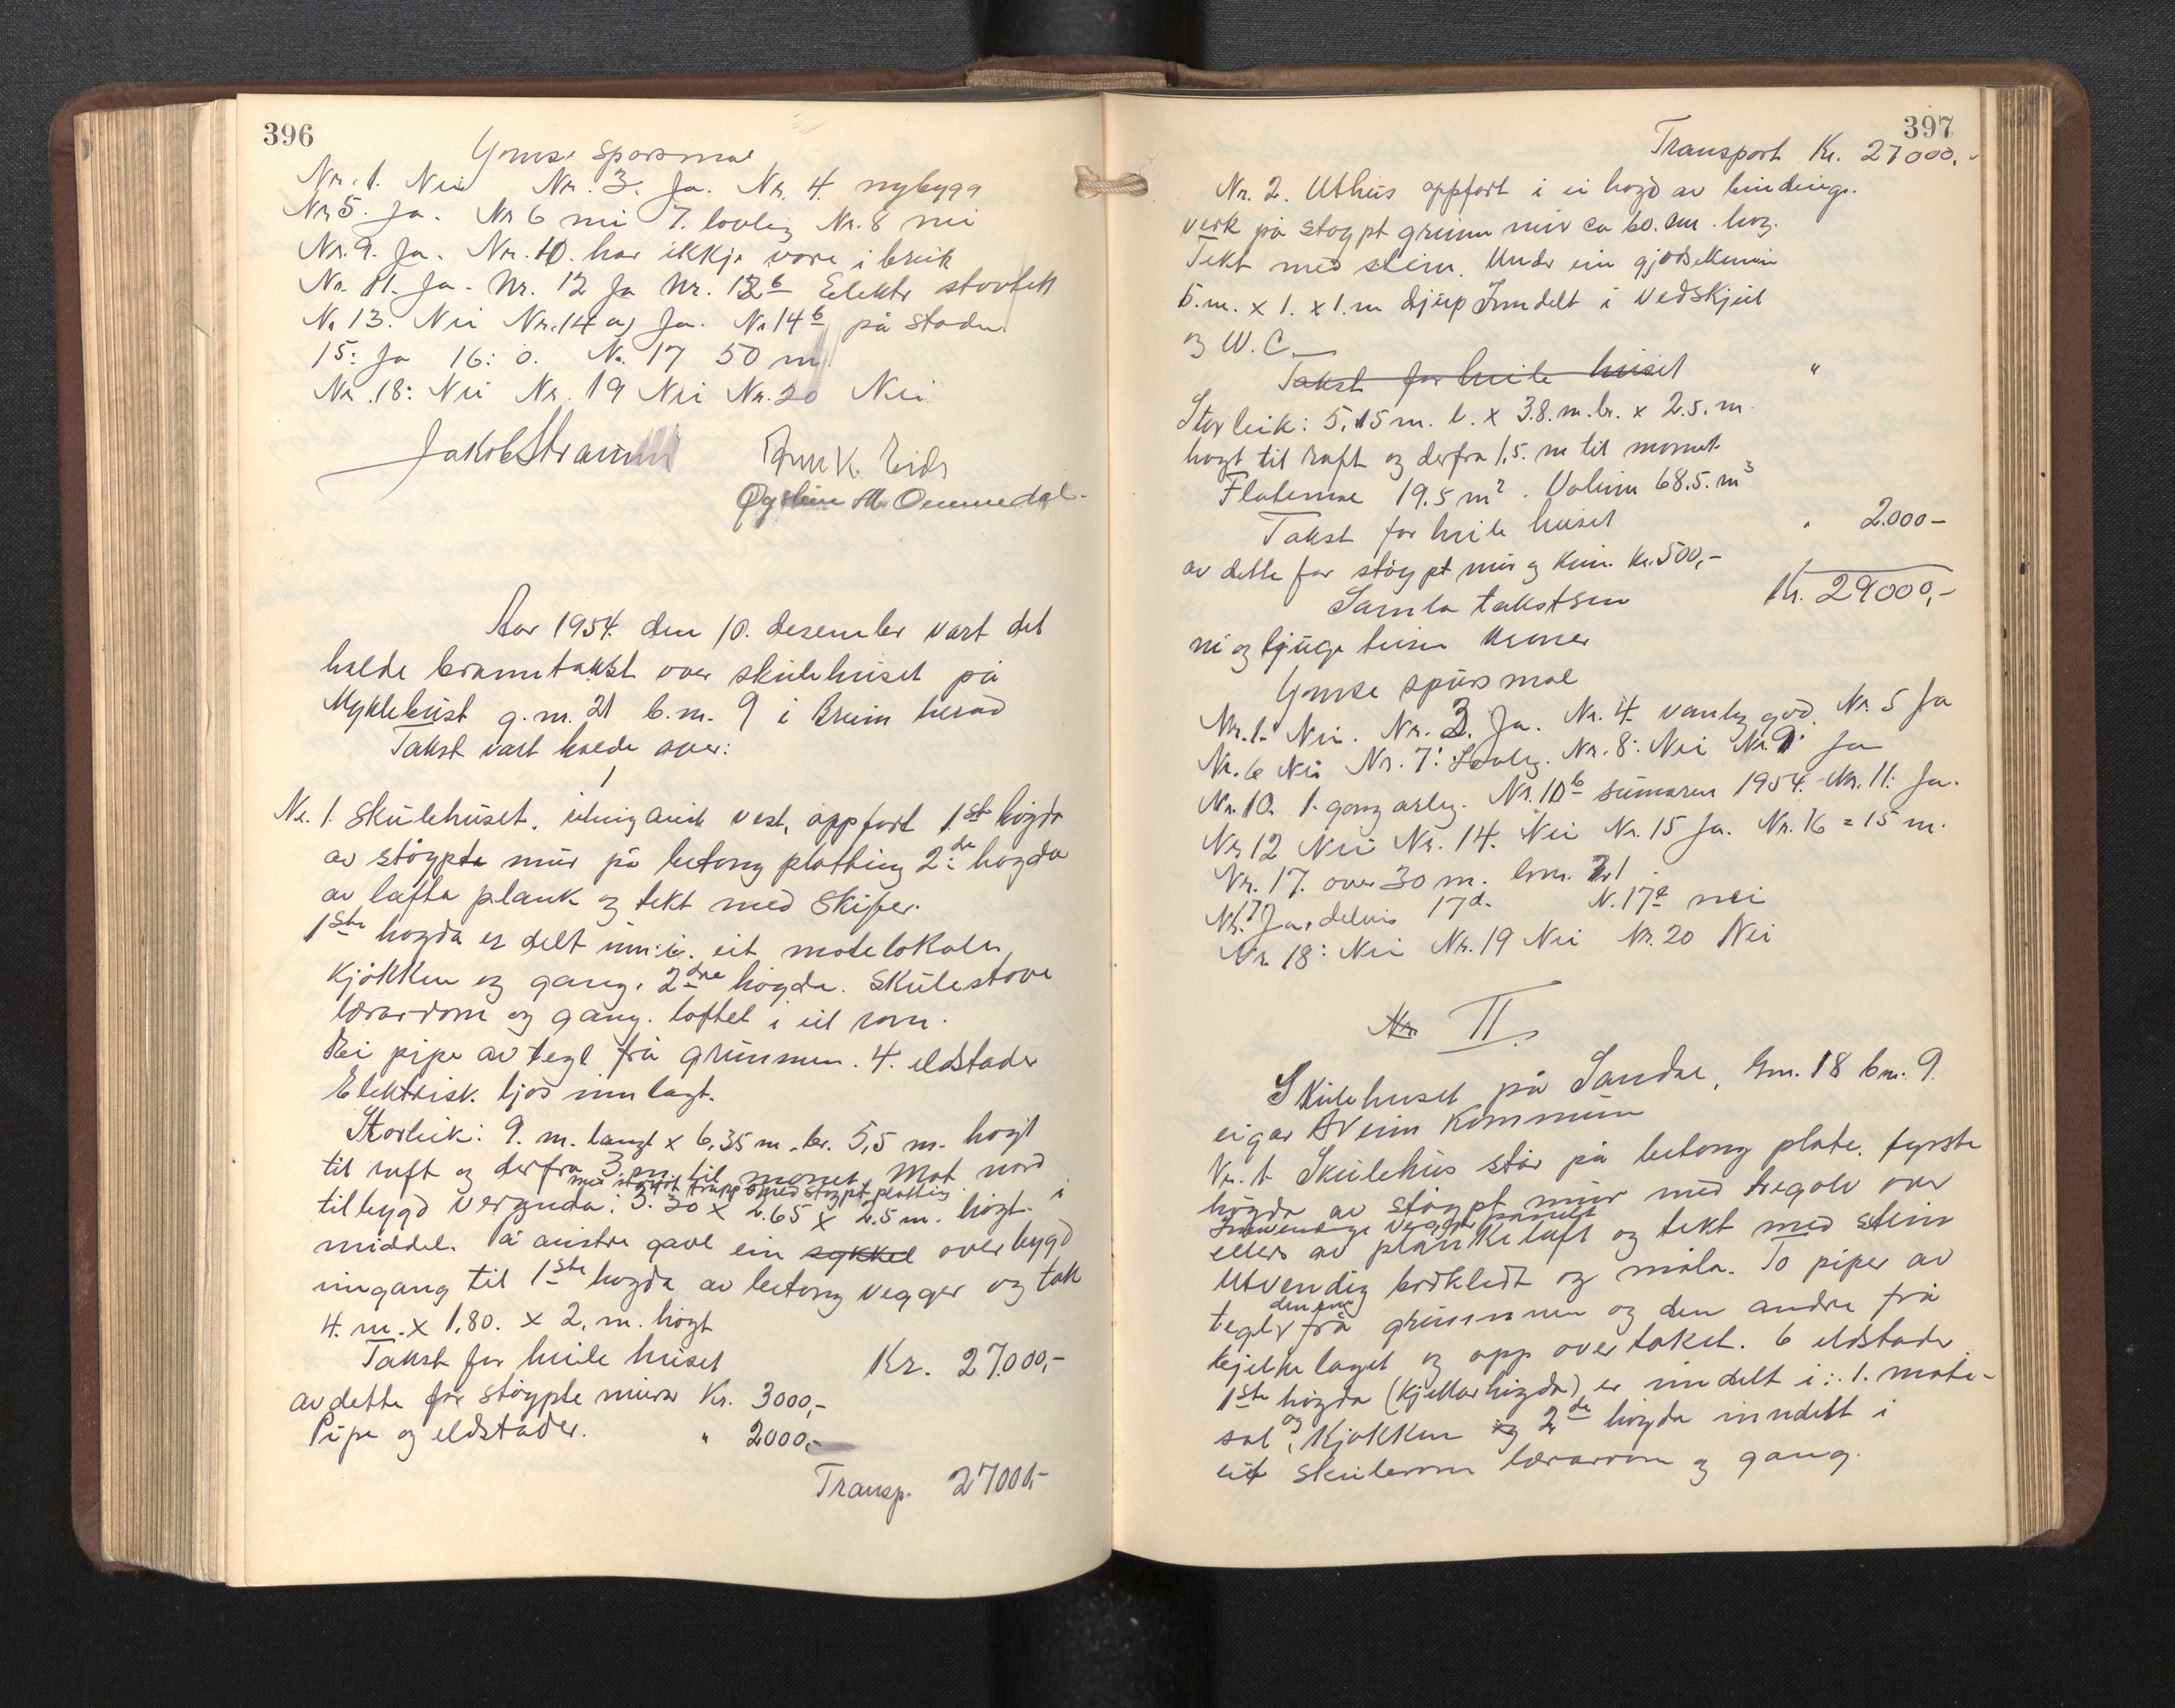 396
Ymse sporsmal
Nr. 1. Nei Nr. 3. Ja. Nr. 4. nybygg
Nr 5. Ja. Nr 6 nei 7. lovleg Nr. 8 nei
Nr. 9. Ja. Nr. 10. har ikkje vore i bruk
Nr. 11. Ja. Nr. 12 Ja Nr. 12b Elektr
Nr 13. Nei Nr. 14 a) Ja. Nr 14b på staden
15: Ja 16: 0. Nr. 17 50 m
Nr. 18: Nei Nr. 19 Nei Nr. 20 Nei
Jakob
K. Eide
Øystein M Ommedal.
Aar 1954. den 10. desember vart det
halde branntakst over skulehuset på
Myklebust g.nr. 21 b.nr. 9 i Breim herad
Takst vart halde over:
1
Nr. 1. Skulehuset. vest, oppfort 1ste høgda
av støypte mur på betong platting 2de høgda
av lafta plank og tekt med Skifer.
1ste høgda er delt inn i. eit møtelokale,
Kjøkken og gang. 2dre høgda. Skulestove
lærarrom og gang. loftet i eit rom.
Ei pipe av tegl frå grunnen. 4. eldstader
Elektrisk ljos innlagt.
Storleik: 9. m. langt x 6,35 m. br. 5,5 m. høgt
til raft og derfra 3. m. til mønet. Mot nord
med støypt trapp med støypt platting
tilbygd veranda: 3.30 x 2.65 x 2.5 m. høgt. i
middel. På austre gavl ein sykkel overbygd
inngang til 1ste høgda av betong vegger og tak
4. m. x 1,80. x 2. m. høgt
Takst for heile huset Kr. 27000,-
av dette for støypte murar Kr. 3000,-
Pipe og eldstader. " 2000,-
Transp. 27000,-
397
Transport Kr. 27000,-
Nr. 2. Uthus oppfort i ei høgd av bindings-
verk på støypt grunn mur ca 60. cm. høg.
Tekt med stein. Under ein gjødselkum
5. m. x 1. x 1. m djup Inndelt i vedskjul
og W.C.
Takst for heile huset "
Storleik: 5,15 m. l. x 3.8. m. br. x 2.5. m.
høgt til raft og derfra 1,5. m til mønet
Flatemål 19.5 m². Volum 68.5. m³
Takst for heile huset " 2.000-
av dette for støypt mur og kum. kr. 500,-
Samla takstsum Kr. 29000,-
ni og tjuge tusen kroner
Ymse spursmal
Nr. 1. Nei. Nr. 3. Ja. Nr. 4. vanleg god. Nr. 5 Ja
Nr. 6 Nei Nr. 7: Lovleg. Nr. 8: Nei Nr. 9: Ja
Nr. 10. 1. gong arleg. Nr. 10b sumaren 1954. Nr. 11: Ja.
Nr 12 Nei Nr. 14. Nei Nr. 15 Ja. Nr. 16 = 15 m.
Nr. 17. over 30 m. bnr. 21
Nr. 17 Ja, delvis 17d. N. 17e nei
Nr. 18: Nei Nr. 19 Nei Nr. 20 Nei
Nr II.
Skulehuset på Sandal, Gnr. 18 bnr. 9.
eigar Breim Kommune
Nr. 1. Skulehus står på betong plate. fyrste
høgda av støypt mur med tregolv over
Innvendige vegger panelt
ellers av plankelaft og tekt med stein
Utvendig bordkledt og måla. To piper av
den eine
tegl, frå grunnen og den andre frå
bjelkelaget og opp over taket. 6 eldstader
1ste høgda (kjellarhøgda) er inndelt i: 1. møte-
sal og Kjøkken og 2de høgda inndelt i
eit skulerom lærarrom og gang.